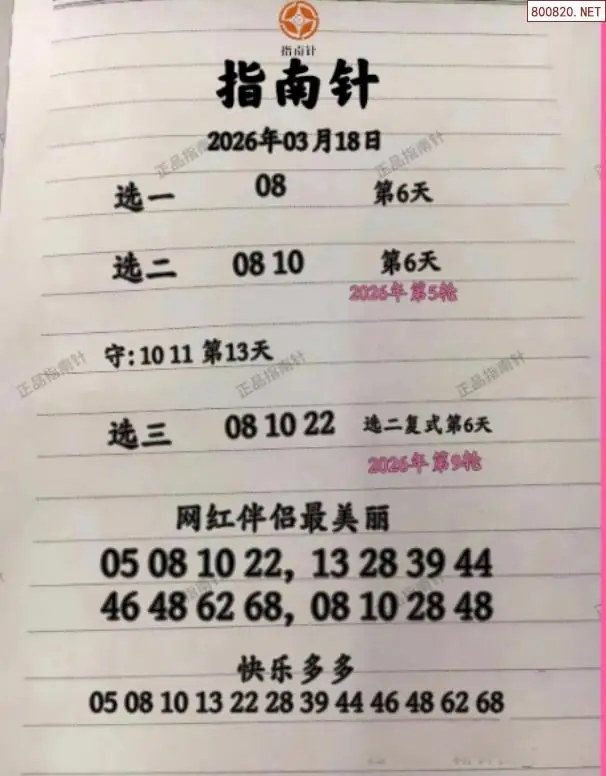 800820.NET
指南针
指南针
2026年03月18日
正品指南针 正品指南针
选一 08 第6天
选二 08 10 第6天
2026年 第5轮
守:10 11 第13天
正品指南针 正品指南针 正品指南针
选三 08 10 22 选二复式第6天
2026年 第9轮
网红伴侣最美丽
05 08 10 22, 13 28 39 44
46 48 62 68, 08 10 28 48
快乐多多
05 08 10 13 22 28 39 44 46 48 62 68